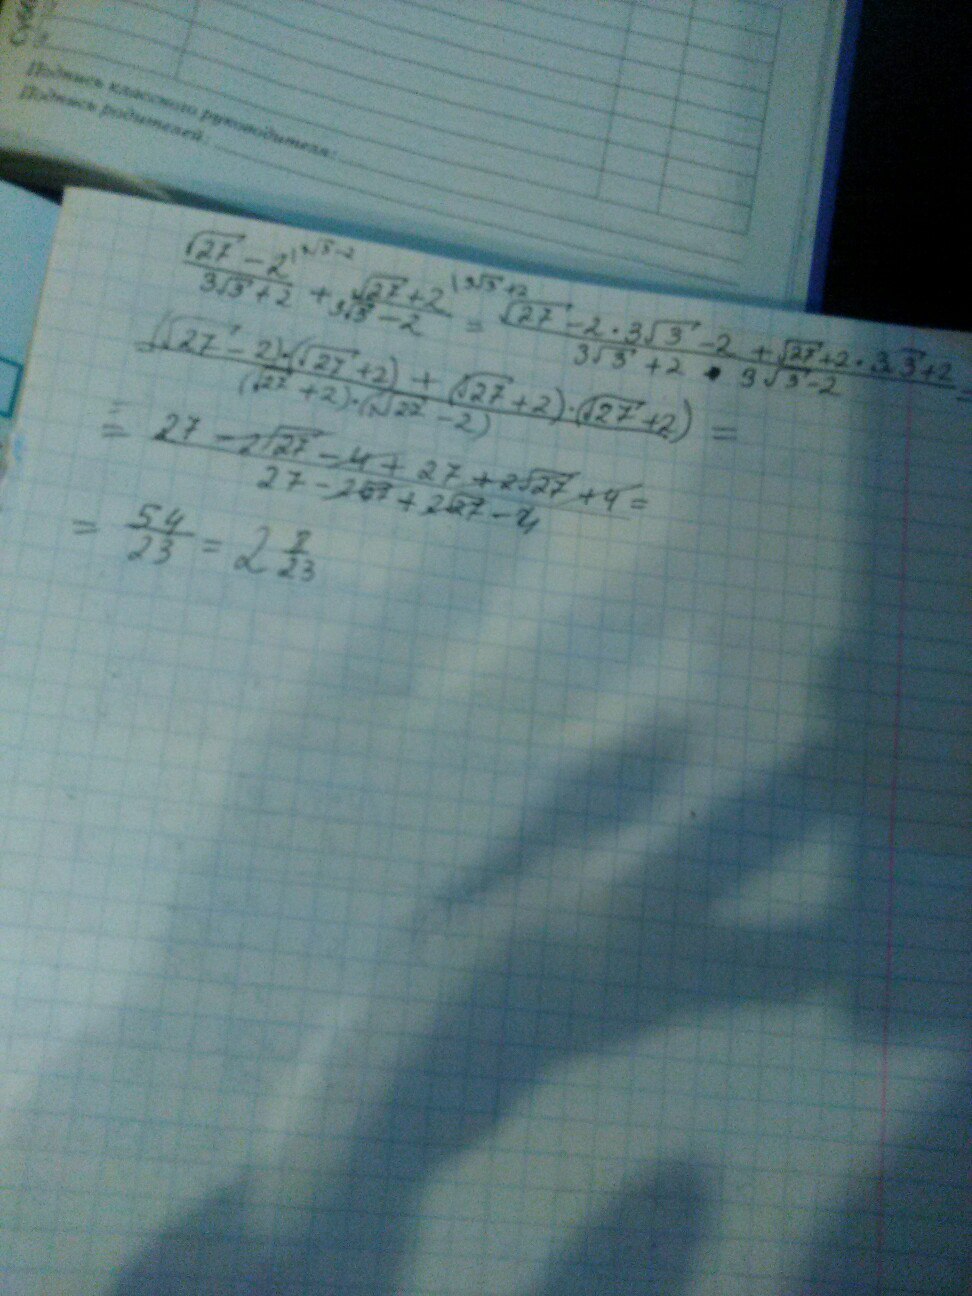 Подпись классного руководителя
Подпись родителей
(√27 − 2)/(3√3 + 2) |3√3−2 + (√27 + 2)/(3√3 − 2) |3√3+2 = (√27 − 2 · 3√3 − 2 + √27 + 2 · 3√3 + 2)/(3√3 + 2 · 3√3 − 2) =
((√27 − 2)·(√27 + 2) + (√27 + 2)·(√27 + 2))/((√27 + 2)·(√27 − 2)) =
= (27 − 2√27 − 4 + 27 + 2√27 + 4)/(27 − 2√27 + 2√27 − 4) =
= 54/23 = 2 8/23